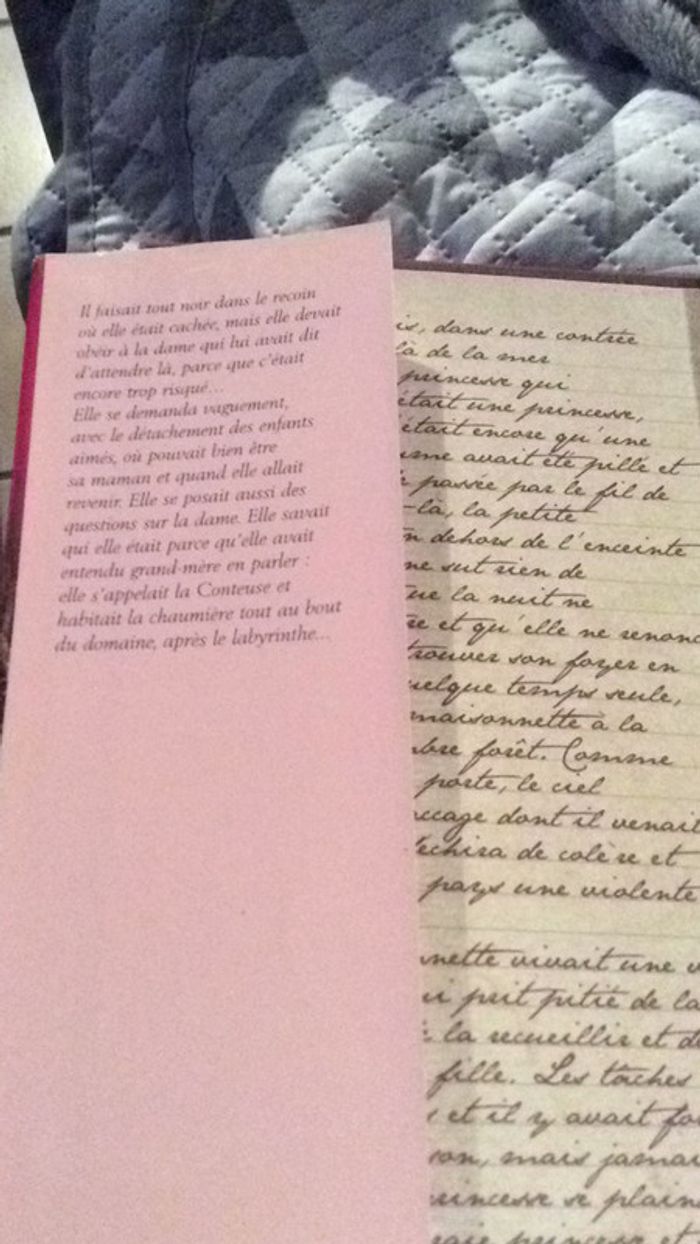 Il faisait tout noir dans le recoin
où elle était cachée, mais elle devait
obéir à la dame qui lui avait dit
d'attendre là, parce que c'était
encore trop risqué...
Elle se demanda vaguement,
avec le détachement des enfants
aimés, où pouvait bien être
sa maman et quand elle allait
revenir. Elle se posait aussi des
questions sur la dame. Elle savait
qui elle était parce qu'elle avait
entendu grand-mère en parler :
elle s'appelait la Conteuse et
habitait la chaumière tout au bout
du domaine, après le labyrinthe...
is, dans une contrée
là de la mer
princesse qui
était une princesse,
était encore qu'une
ume avait été pillé et
passée par le fil de
-là, la petite
n dehors de l'enceinte
ne sut rien de
ue la nuit ne
re et qu'elle ne renonc
trouver son foyer en
uelque temps seule,
maisonnette à la
bre forêt. Comme
porte, le ciel
ccage dont il venait
échira de colère et
pays une violente
nnette vivait une v
ui prit pitié de la
la recueillir et d
fille. Les tâches
s et il y avait fo
son, mais jamai
rincesse se plain
raie princesse et